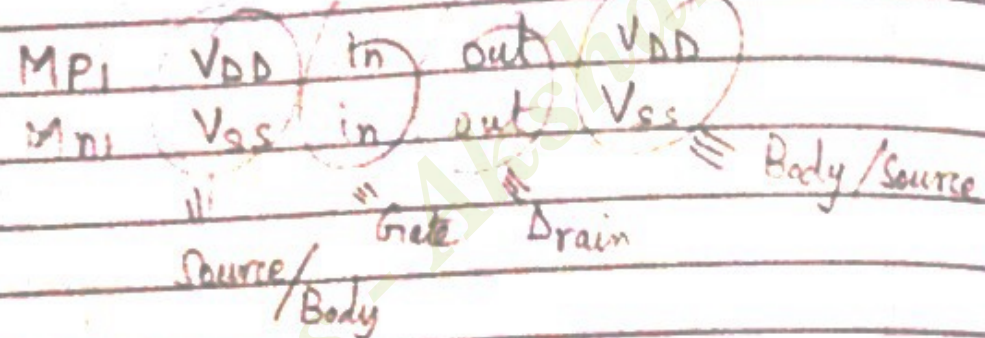 MP1 VDD in out VDD
Mn1 VSS in out VSS
Body/Source
Gate Drain
Source/
Body